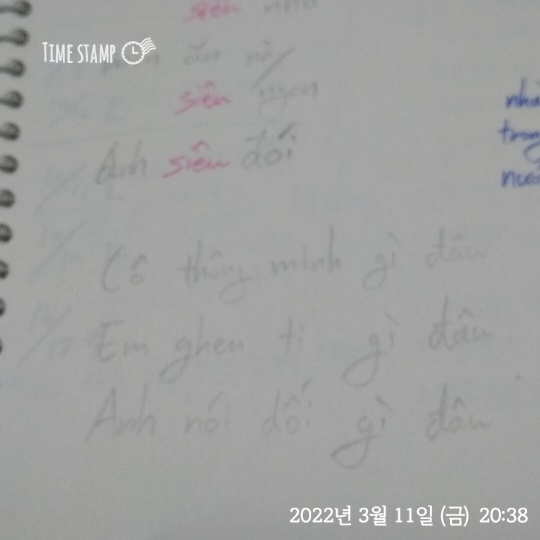 siêu nhỏ
TIME STAMP
ăn này
siêu ngon
nhà
Anh siêu đói
trong
nướ
Cô thông minh gì đâu
Em ghen tị gì đâu
Anh nói dối gì đâu
2022년 3월 11일 (금) 20:38